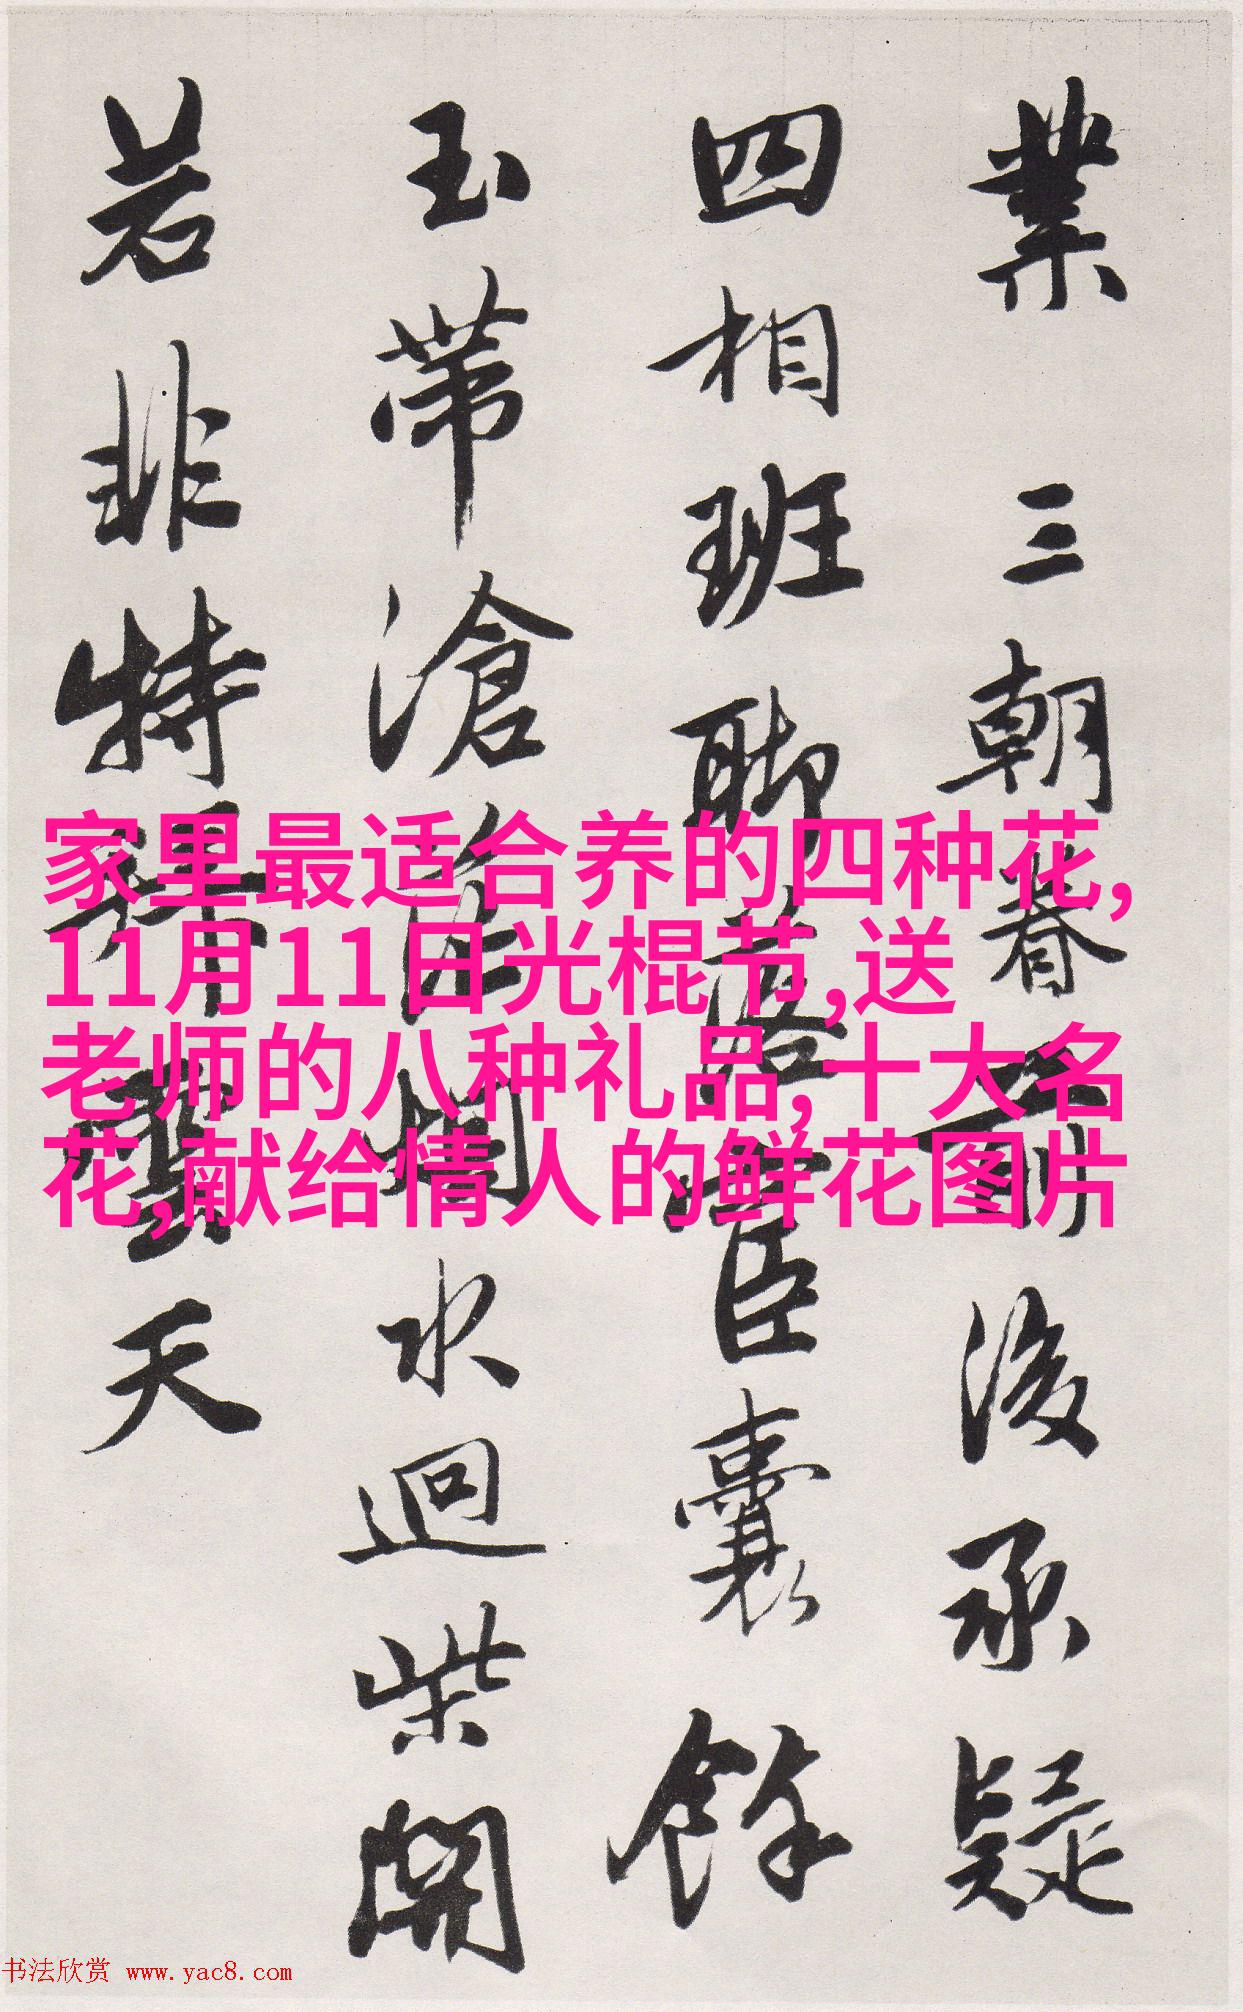 業 三朝眷前後承疑
四相班聊落官臣囊餘
玉帶滄江爛水迴柴關
若非特拜雲天
家里最适合养的四种花,
11月11日光棍节,送
老师的八种礼品,十大名
花,献给情人的鲜花图片
书法欣赏 www.yac8.com